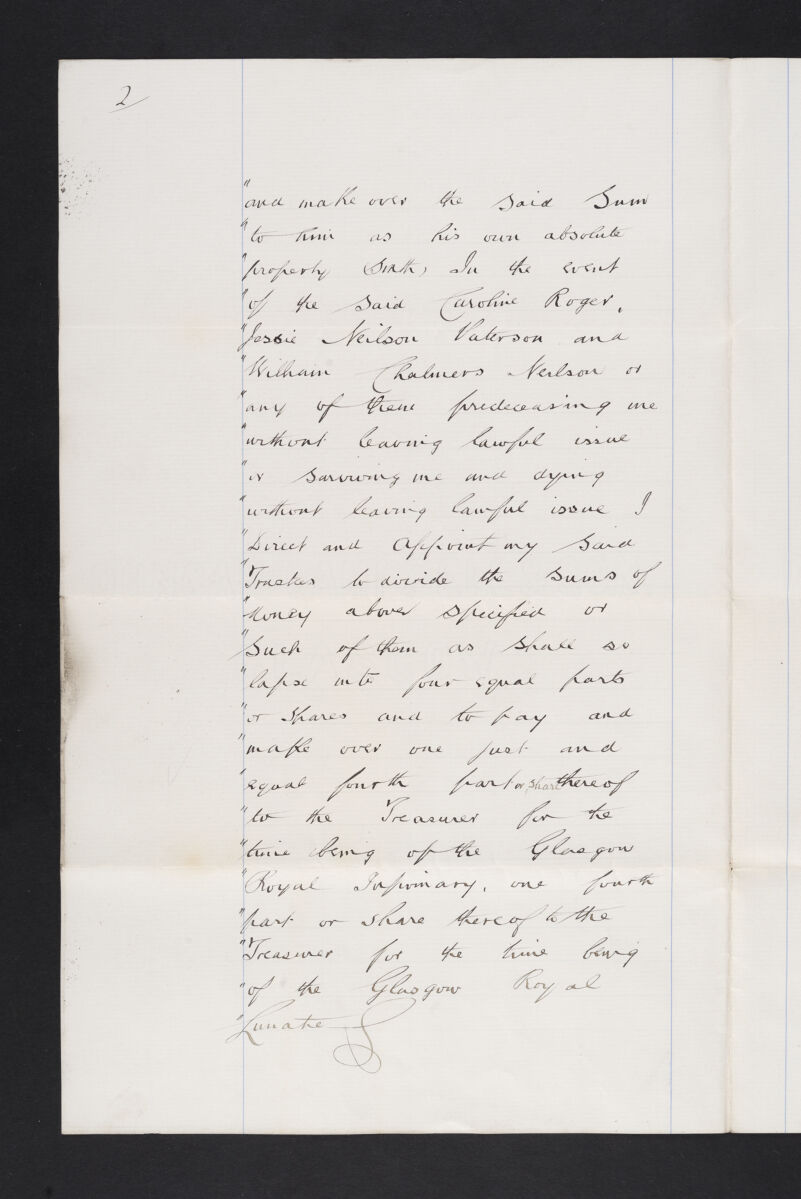 2
"and make over the said Sum
"to him as his own absolute
"property Sixth, In the event
"of the said Caroline Roger,
"Jessie Neilson Paterson and
"William Chalmers Neilson or
"any of them predeceasing me
"without leaving lawful issue
"or surviving me and dying
"without leaving lawful issue I
"Direct and Appoint my said
"Trustees to divide the sums of
"Money above specified or
"Such of them as shall so
"lapse into four equal parts
"or shares and to pay and
"make over one just and
"equal fourth part or share thereof
"to the Treasurer for the
"time being of the Glasgow
"Royal Infirmary, one fourth
"part or share thereof to the
"Treasurer for the time being
"of the Glasgow Royal
"Lunatic